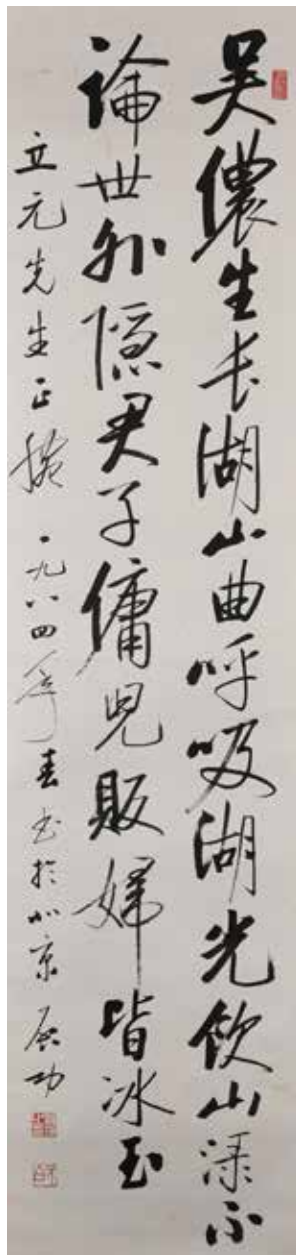 吴儂生长湖山曲呼吸湖光飲山渌不
論世外隱君子傭兒販婦皆冰玉
立元先生正 一九八四年春书於北京 启功